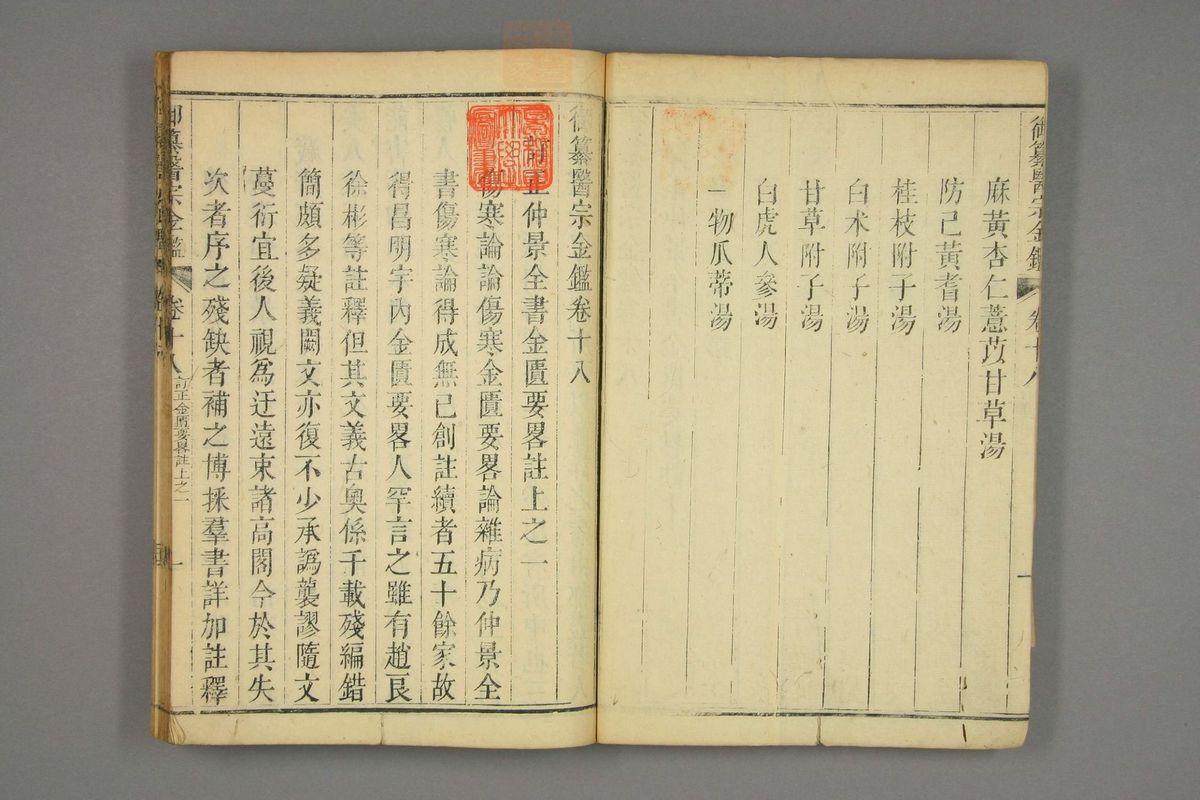 御纂醫宗金鑑 卷十八 一
麻黃杏仁薏苡甘草湯
防己黃耆湯
桂枝附子湯
白朮附子湯
甘草附子湯
白虎人參湯
一物瓜蒂湯
御纂醫宗金鑑卷十八
訂正仲景全書金匱要畧註上之一
傷寒論論傷寒金匱要畧論雜病乃仲景全
書傷寒論得成無已創註續者五十餘家故
得昌明宇內金匱要畧人罕言之雖有趙良
徐彬等註釋但其文義古奧係千載殘編錯
簡頗多疑義闕文亦復不少承譌襲謬隨文
蔓衍宜後人視爲迂遠束諸高閣今於其失
次者序之殘缺者補之博採羣書詳加註釋
御纂醫宗金鑑 卷十八 訂正金匱要畧註上之一 一